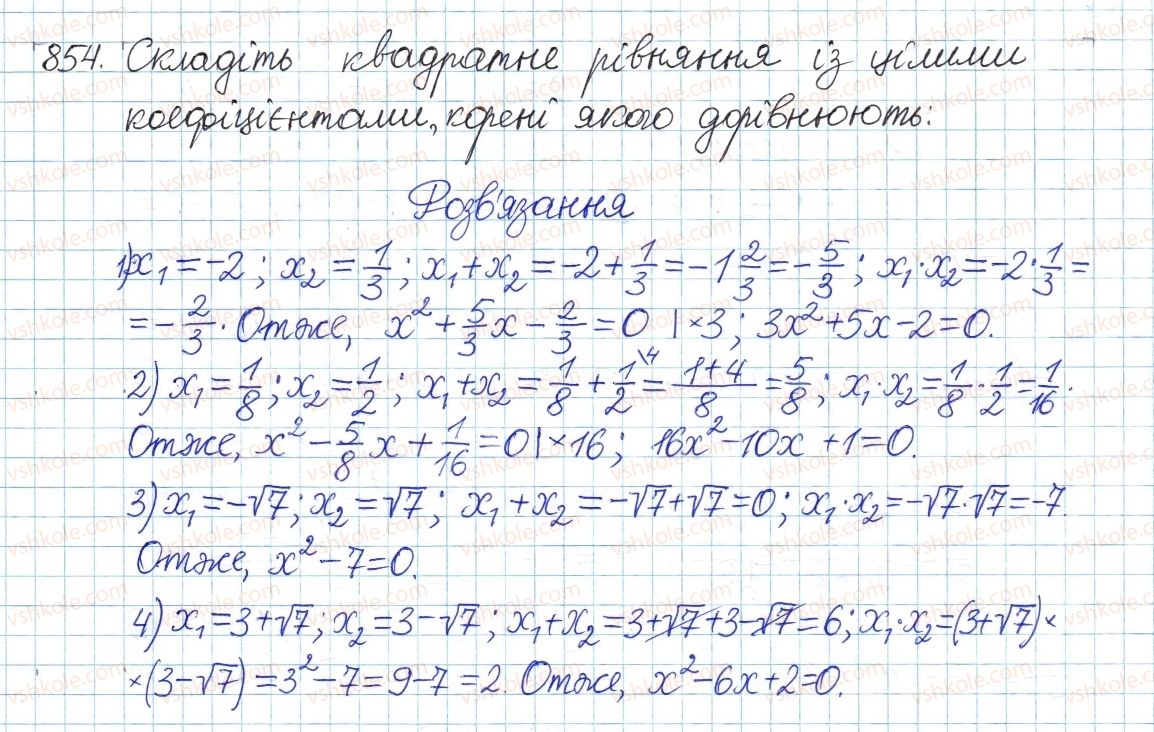 854. Складіть квадратне рівняння із цілими
коефіцієнтами, корені якого дорівнюють:
Розв'язання
1) x₁ = -2; x₂ = 1/3; x₁ + x₂ = -2 + 1/3 = -1 2/3 = -5/3; x₁ · x₂ = -2 · 1/3 =
= -2/3. Отже, x² + 5/3 x - 2/3 = 0 | × 3; 3x² + 5x - 2 = 0.
2) x₁ = 1/8; x₂ = 1/2; x₁ + x₂ = 1/8 + 1/2 \4 = (1+4)/8 = 5/8; x₁ · x₂ = 1/8 · 1/2 = 1/16.
Отже, x² - 5/8 x + 1/16 = 0 | × 16; 16x² - 10x + 1 = 0.
3) x₁ = -√7; x₂ = √7; x₁ + x₂ = -√7 + √7 = 0; x₁ · x₂ = -√7 · √7 = -7.
Отже, x² - 7 = 0.
4) x₁ = 3 + √7; x₂ = 3 - √7; x₁ + x₂ = 3 + √7 + 3 - √7 = 6; x₁ · x₂ = (3 + √7) ×
× (3 - √7) = 3² - 7 = 9 - 7 = 2. Отже, x² - 6x + 2 = 0.